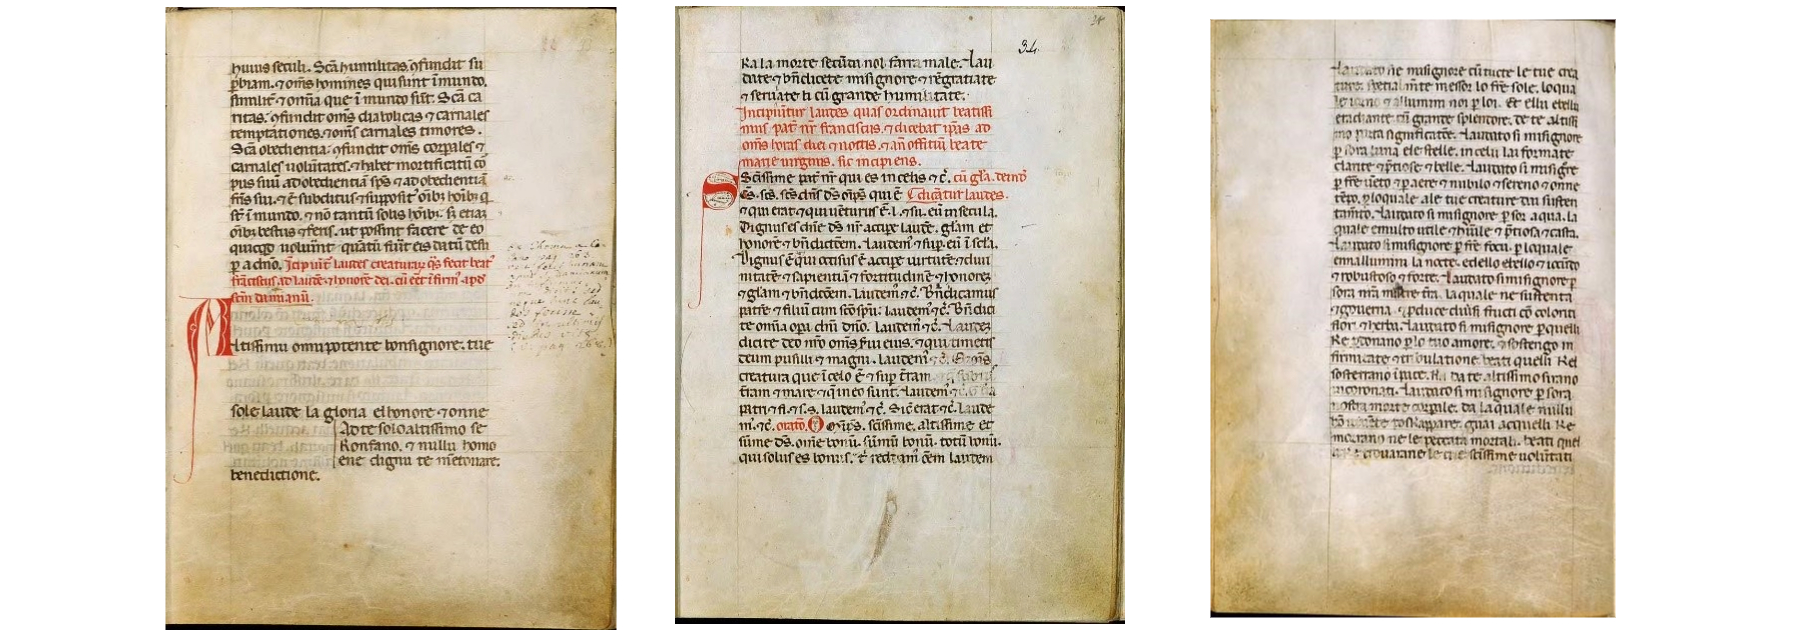 huius seculi. Sc̄a humilitas ꝯfundit su
ꝑbiam. ⁊ om̄s homines qui sunt ī mundo.
similit̄ ⁊ om̄ia que ī mundo sūt. Sc̄a ca
ritas. ꝯfundit om̄s diabolicas ⁊ carnales
temptationes. ⁊ om̄s carnales timores.
Sc̄a obedientia. ꝯfundit om̄s corꝑales ⁊
carnales uolūtates. ⁊ habet mortificatū co
pus suū ad obedientiā sp̄s ⁊ ad obedientiā
fr̄is sui. ⁊ ē subditus ⁊ supposit᾽ oīb; hoīb; q
st̄ ī mundo. ⁊ nō tantū solus hoīb;. s; etiaꝫ
oīb; bestiis ⁊ feris. ut possint facere de eo
quicqd uoluīnt quātū fūit eis datū desu
ꝑ a dn̄o. Īcipiūt laudes creaturaꝝ q̄s fecit beat᾽
frāciscus. ad laudē ⁊ honorē dei. cū eēt ī firm᾽ apđ
scm̄ damianū.
Altissimu onnipotente bonsignore. tue
sole laude la gloria elhonore ⁊ onne
benedictione.
Ad te solo altissimo se
Konfano. ⁊ nullu homo
ene dignu te mētouare.
34
Ra la morte secūda nol farra male. Lau
date ⁊ bn̄dicete misignore ⁊ rēgratiate
⁊ seruiate li cū grande humilitate.
Incipiūtur laudes quas ordinauit beatissi
mus pat᾽ nr̄ franciscus. ⁊ dicebat ip̄as ad
om̄s horas diei ⁊ noctis. ⁊ an̄ offitiū beate
marie uirginis. sic incipiens.
Sc̄issime pat᾽ nr̄ qui es in celis ⁊ c̄. cū gl̄a. deinđ
Sc̄s. sc̄s. sc̄s dn̄s ds̄ oīps qui ē dicātur laudes.
⁊ qui erat ⁊ qui uēturus ē. l. ⁊ su. eū in secula.
Dignus es dn̄e ds̄ nr̄ accipe laudē. gl̄am et
honorē ⁊ bn̄dictōem. Laudem᾽ ⁊ sup. eū ī sc̄la.
Dignus ē q̄ui occisus ē accipe uirtutē ⁊ diui
nitatē ⁊ sapientiā ⁊ fortitudinē ⁊ honoreꝫ
⁊ gl̄am ⁊ bn̄dictōem. Laudem᾽ ⁊ c̄. Bn̄dicamus
patrē ⁊ filiū cum sc̄o sp̄u. Laudem᾽ ⁊ c̄. Bn̄dici
te om̄ia opa dn̄i dn̄o. laudem᾽ ⁊ c̄. Laudeꝫ
dicite deo nr̄o om̄s ẜui eius. ⁊ qui timetis
deum pusilli ⁊ magni. Laudem᾽ ⁊ c̄.
creatura que ī celo ē ⁊ sup t̄ram
t̄ram ⁊ mare ⁊ q̄ in eo sunt. Laudem᾽ ⁊ c̄. Gl̄a
patri ⁊ fi. ⁊ s. s. laudem᾽ ⁊ c̄. Sic̄ erat ⁊ c̄. Laude
m᾽. ⁊ c̄. orato. Oīps. sc̄issime. altissime et
sūme ds̄. om̄e bonū. sūmū bonū. totū bonū.
qui solus es bonus. t᷑ reddam᾽ oēm laudem
Laudato sie misignore cū tucte le tue crea
ture. spetialm̄te messor lo fr̄e sole. loqual
le iorno ⁊ allumini noi ꝑ loi. Et ellu ebellu
eradiante cū grande splendore. de te altissi
mo porta significatōe. Laudato si misignore
ꝑ sora luna ele stelle. in celu lai formate
clarite ⁊ p̄tiose ⁊ belle. Laudato si misignre
ꝑ fr̄e uēto ⁊ ꝑ aere ⁊ nubilo ⁊ sereno ⁊ onne
tēpo. ꝑ loquale ale tue creature dai susten
tamēto. Laudato si misignore ꝑ sor aqua. la
quale emulto utile ⁊ hūile ⁊ p̄tiosa ⁊ casta.
Laudato si misignore ꝑ fr̄e focu. ꝑ loquale
ennallumini la nocte. edello ebello ⁊ iocūdo
⁊ robustoso ⁊ forte. Laudato si misignore ꝑ
sora nr̄a matre t̄ra. la quale ne sustenta
⁊ gouerna. ⁊ ꝓduce diūsi fructi cō coloriti
flori ⁊ herba. Laudato si misignore ꝑ quelli
Ke ꝑdonano ꝑ lo tuo amore. ⁊ sostengo in
firmitate ⁊ tribulatione. beati quelli Kel
sosterrano ī pace. Ka da te altissimo sirano
incoronati. Laudato si misignore ꝑ sora
nostra morte corꝑale. da la quale nullu
hō uiuēte po skappare. guai acquelli Ke
morrano ne le peccata mortali. beati quel
li Ke trouarane le tue sc̄issime uolūtati